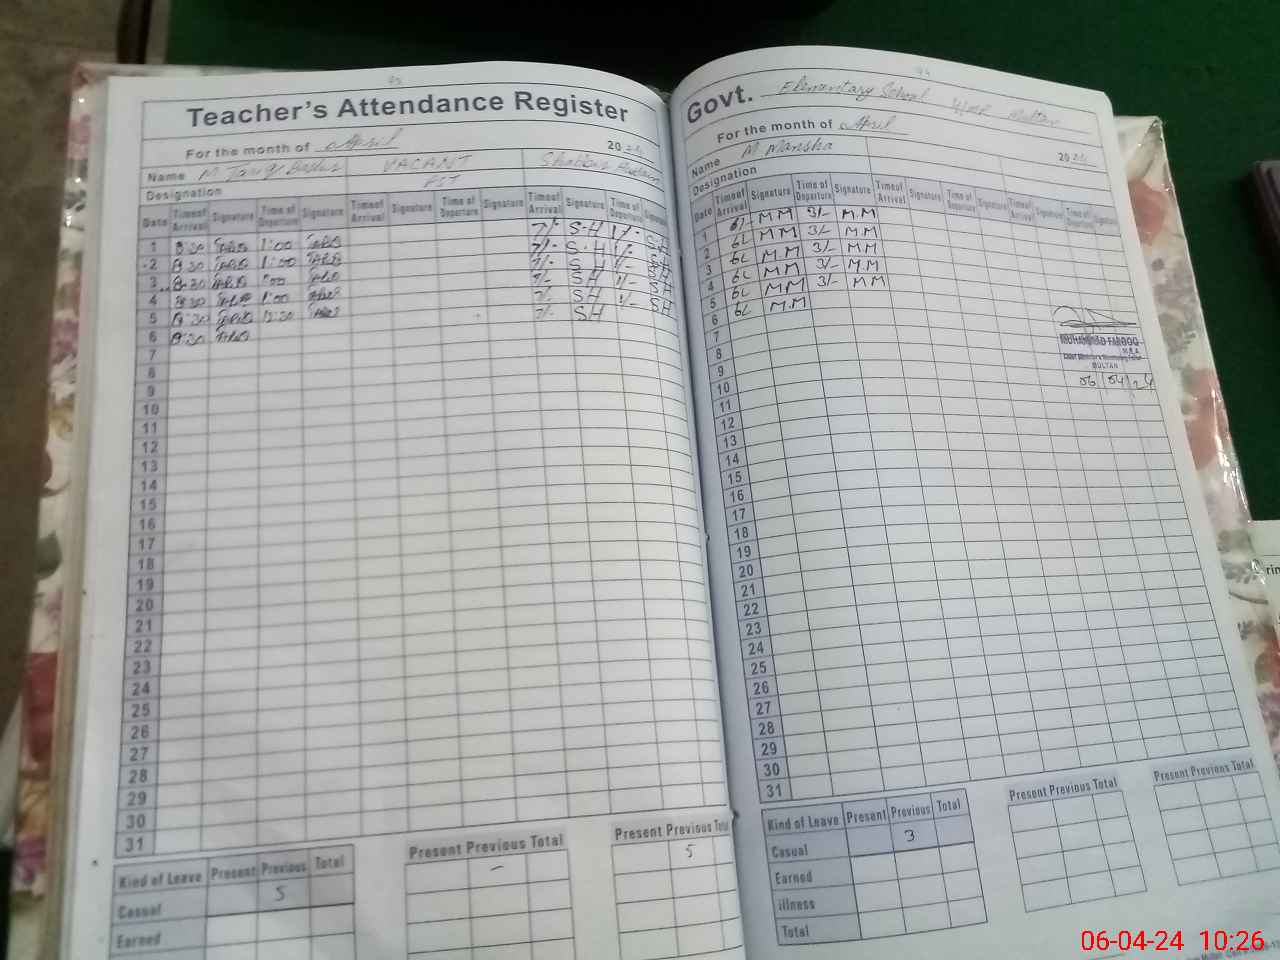 95
Teacher's Attendance Register
For the month of April 20
Name M Tariq VACANT Hussain
Designation PST
Date Time of Arrival Signature Time of Departure Signature Time of Arrival Signature Time of Departure Signature Time of Arrival Signature Time of Departure Signature
1 8:30 TARIQ 1:00 TARIQ 7/- S-H 1/- SH
2 8:30 TARIQ 1:00 TARIQ 7/- S-H 1/- SH
3 8-30 TARIQ 1:00 TARIQ 7/- SH 1/- SH
4 8:30 TARIQ 1:00 TARIQ 7/- SH 1/- SH
5 8:30 TARIQ 12:30 TARIQ 7/- SH 1/- SH
6 8:30 TARIQ 7/- SH
7
8
9
10
11
12
13
14
15
16
17
18
19
20
21
22
23
24
25
26
27
28
29
30
31
Kind of Leave Present Previous Total Present Previous Total Present Previous Total
Casual 5 – 5
Earned
94
Govt. Elementary School Multan
For the month of April 20
Name M Mansha
Designation
Date Time of Arrival Signature Time of Departure Signature Time of Arrival Signature Time of Departure Signature Time of Arrival Signature Time of Departure Signature
1 MM 3/- M.M
2 MM 3/- MM
3 M.M 3/- MM
4 MM 3/- M.M
5 MM 3/- MM
6 M.M
7
MUHAMMAD FAROOQ
8
M.E.A
Chief Minister's Monitoring Force
9
MULTAN
10
06/04/24
11
12
13
14
15
16
17
18
19
20
21
22
23
24
25
26
27
28
29
30
31
Kind of Leave Present Previous Total Present Previous Total Present Previous Total
Casual 3
Earned
illness
Total
06-04-24 10:26